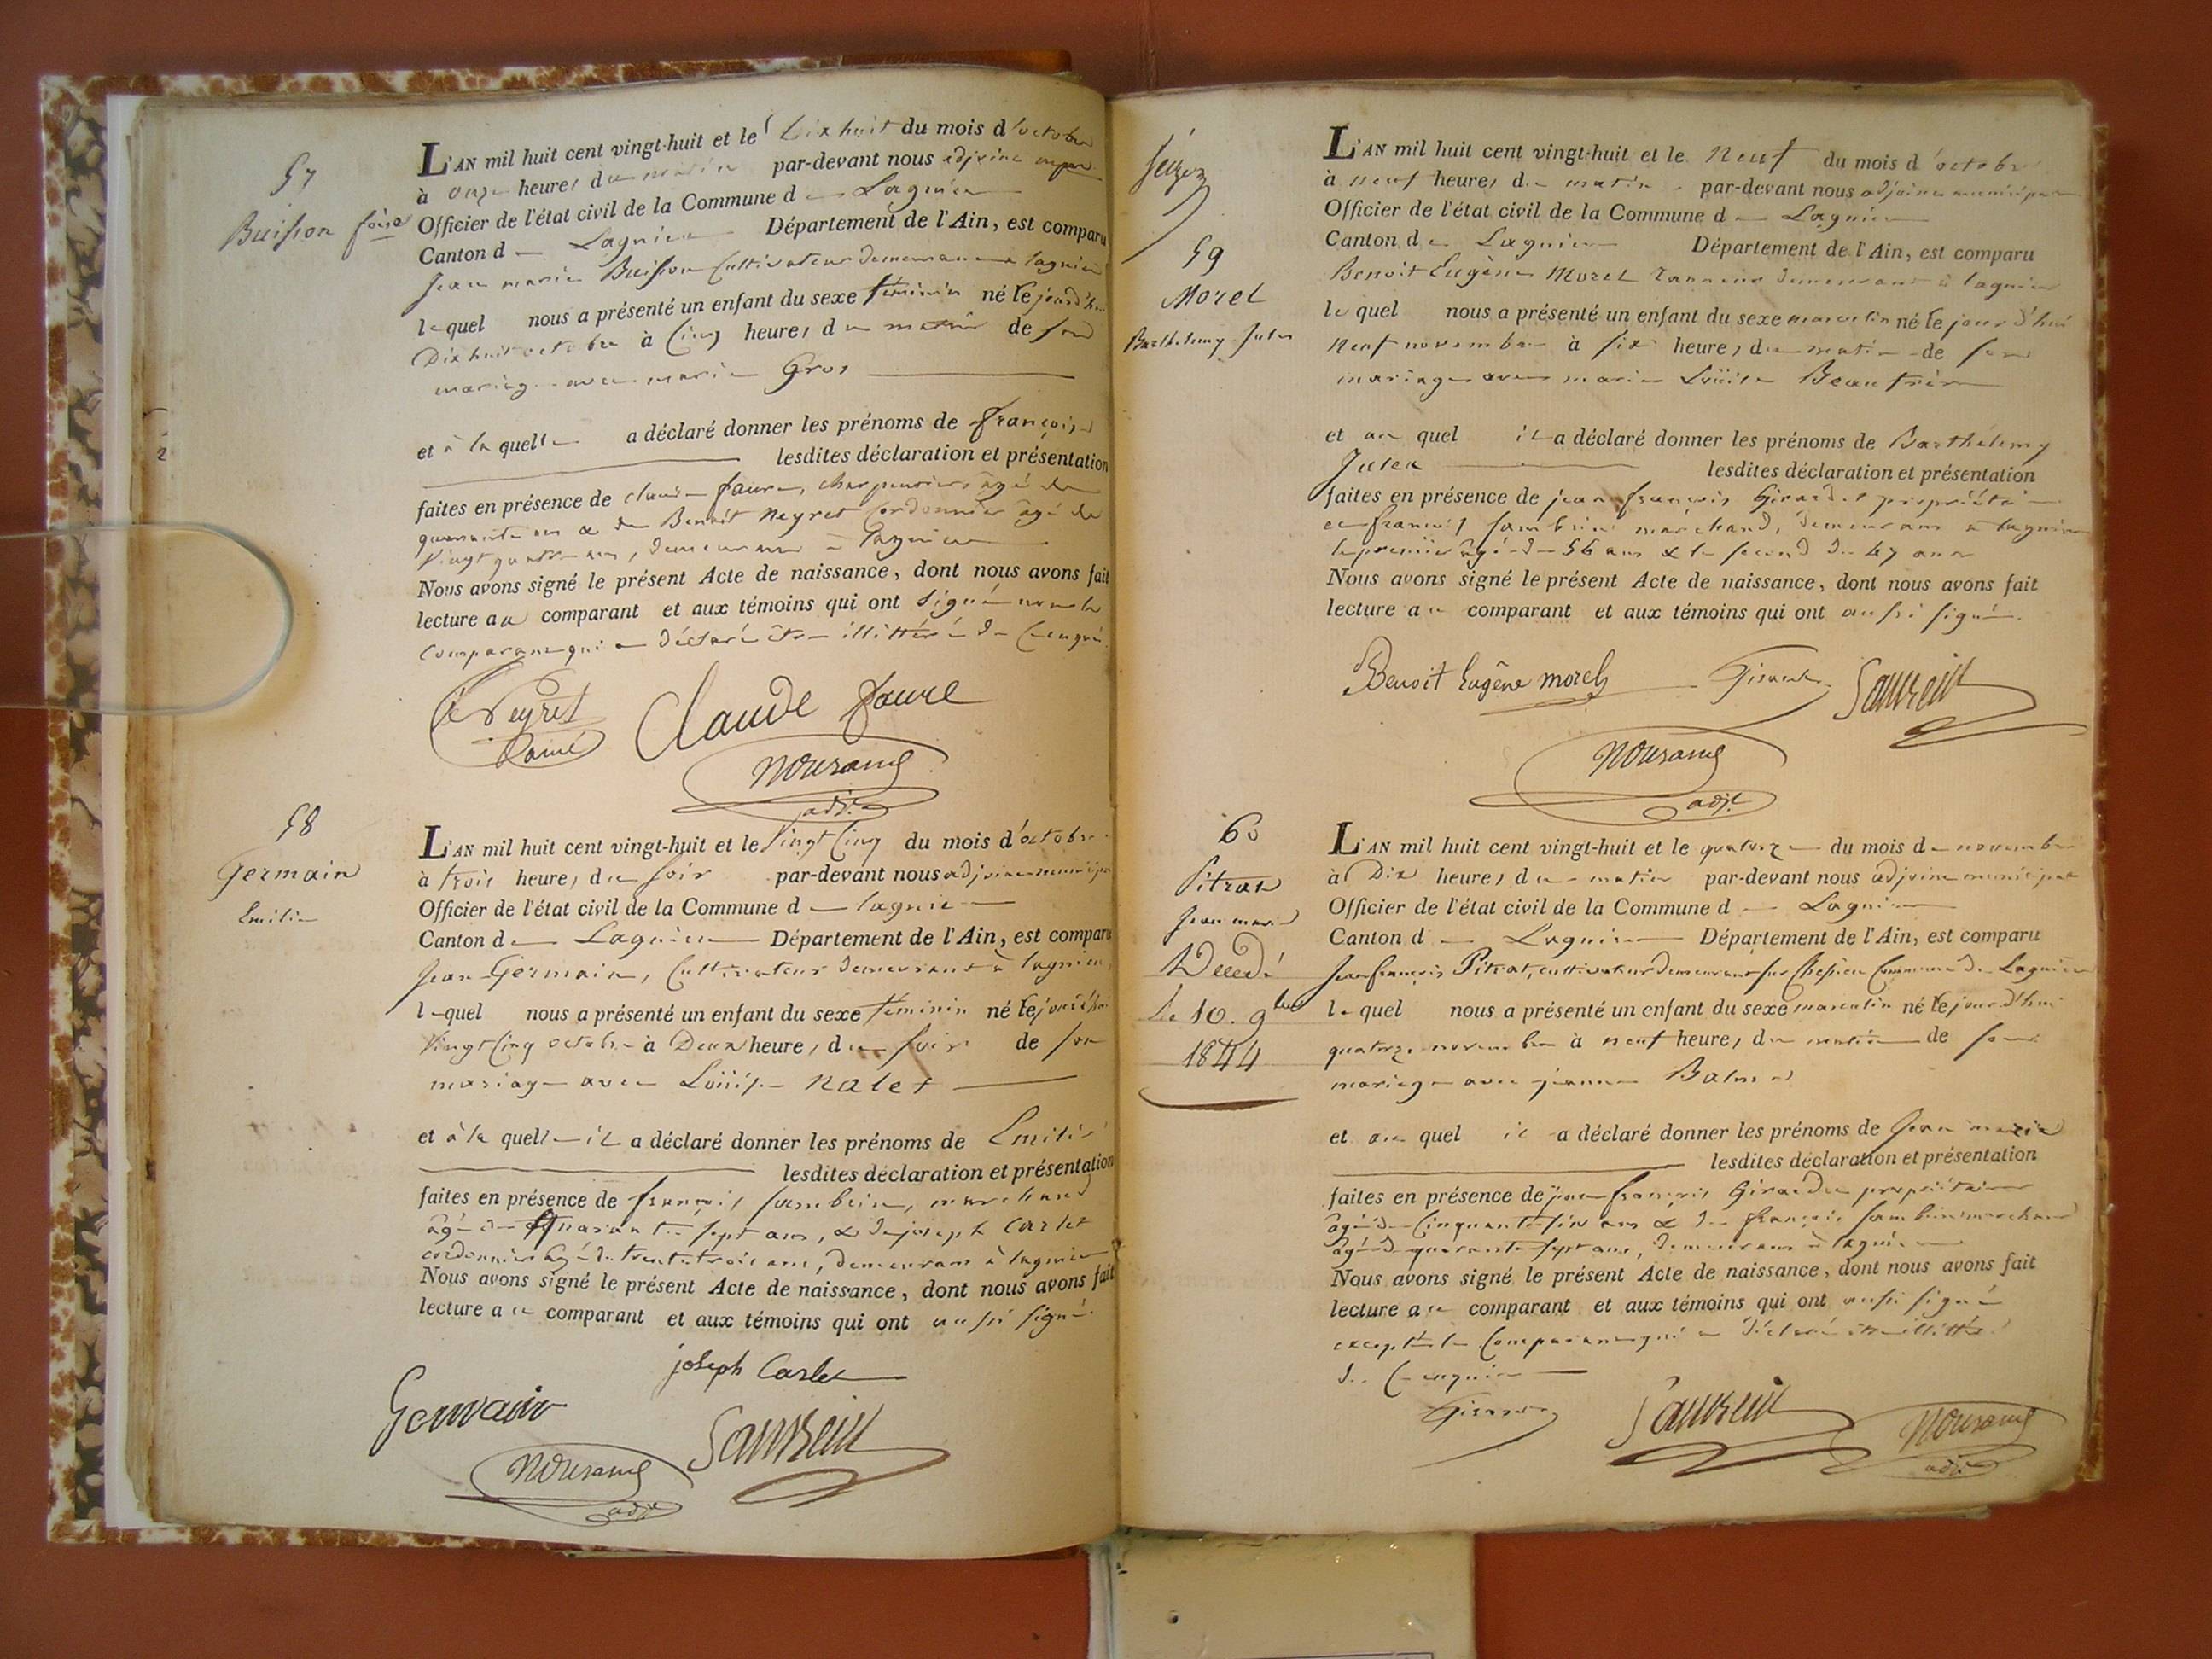 57
Buisson fçoise
L'AN mil huit cent vingt-huit et le Dix huit du mois d'octobre
à onze heures du matin par-devant nous adjoint
Officier de l'état civil de la Commune de Lagnieu
Canton de Lagnieu Département de l'Ain, est comparu
Jean marie Buisson Cultivateur demeurant a lagnieu
lequel nous a présenté un enfant du sexe féminin né le jourd'hui
Dix huit octobre à Cinq heures du matin de son
mariage avec marie Gros
et à la quelle a déclaré donner les prénoms de françoise
lesdites déclaration et présentation
faites en présence de claude faure, charpentier âgé de
quarante ans & de Benoit Neyret Cordonnier âgé de
Vingt quatre ans, demeurant à Lagnieu
Nous avons signé le présent Acte de naissance, dont nous avons fait
lecture au comparant et aux témoins qui ont signé non le
comparant qui a déclaré être illittéré de ce enquis.
Neyret
Claude faure
adjt
58
Germain
Emilie
L'AN mil huit cent vingt-huit et le Vingt Cinq du mois d'octobre
à trois heures du soir par-devant nous adjoint municipal
Officier de l'état civil de la Commune de lagnieu
Canton de Lagnieu Département de l'Ain, est comparu
Jean Germain, Cultivateur demeurant à lagnieu,
lequel nous a présenté un enfant du sexe féminin né le jourd'hui
Vingt Cinq octobre à Deux heures du soir de son
mariage avec Loüise Nalet
et à la quelle il a déclaré donner les prénoms de Emilie
lesdites déclaration et présentation
faites en présence de françois sambuin, marchand
âgé de quarante sept ans, & de joseph Carlet
cordonnier âgé de trente trois ans, demeurans à lagnieu
Nous avons signé le présent Acte de naissance, dont nous avons fait
lecture au comparant et aux témoins qui ont aussi signé.
joseph Carlet
Germain
adjt
59
Morel
Barthelemy Jules
L'AN mil huit cent vingt-huit et le Neuf du mois d'octobre
à neuf heures du matin par-devant nous adjoint municipal
Officier de l'état civil de la Commune de Lagnieu
Canton de Lagnieu Département de l'Ain, est comparu
Benoit Eugène Morel Tanneur demeurant à lagnieu
lequel nous a présenté un enfant du sexe masculin né le jourd'hui
Neuf novembre à six heures du matin de son
mariage avec marie Loüise Beaufrère
et au quel il a déclaré donner les prénoms de Barthélemy
Jules lesdites déclaration et présentation
faites en présence de jean françois Girardet propriétaire
et françois sambuin marchand, demeurans a lagnieu
le premier âgé de 56 ans & le second de 47 ans
Nous avons signé le présent Acte de naissance, dont nous avons fait
lecture au comparant et aux témoins qui ont aussi signé.
Benoit Eugène morel
adjt
60
Pitrat
Jean marie
Décédé
Le 10. 9bre
1844
L'AN mil huit cent vingt-huit et le quatorze du mois de novembre
à Dix heures du matin par-devant nous adjoint municipal
Officier de l'état civil de la Commune de Lagnieu
Canton de Lagnieu Département de l'Ain, est comparu
Jean françois Pitrat, cultivateur demeurant sur Commune de Lagnieu
lequel nous a présenté un enfant du sexe masculin né le jourd'hui
quatorze novembre à neuf heures du matin de son
mariage avec jeanne Balme
et au quel il a déclaré donner les prénoms de Jean marie
lesdites déclaration et présentation
faites en présence de jean françois Girardet propriétaire
âgé de Cinquante six ans & de françois sambuin marchand
âgé de quarante sept ans, demeurans à lagnieu
Nous avons signé le présent Acte de naissance, dont nous avons fait
lecture au comparant et aux témoins qui ont aussi signé
excepté le Comparant qui a déclaré être illittéré
de ce enquis
adjt